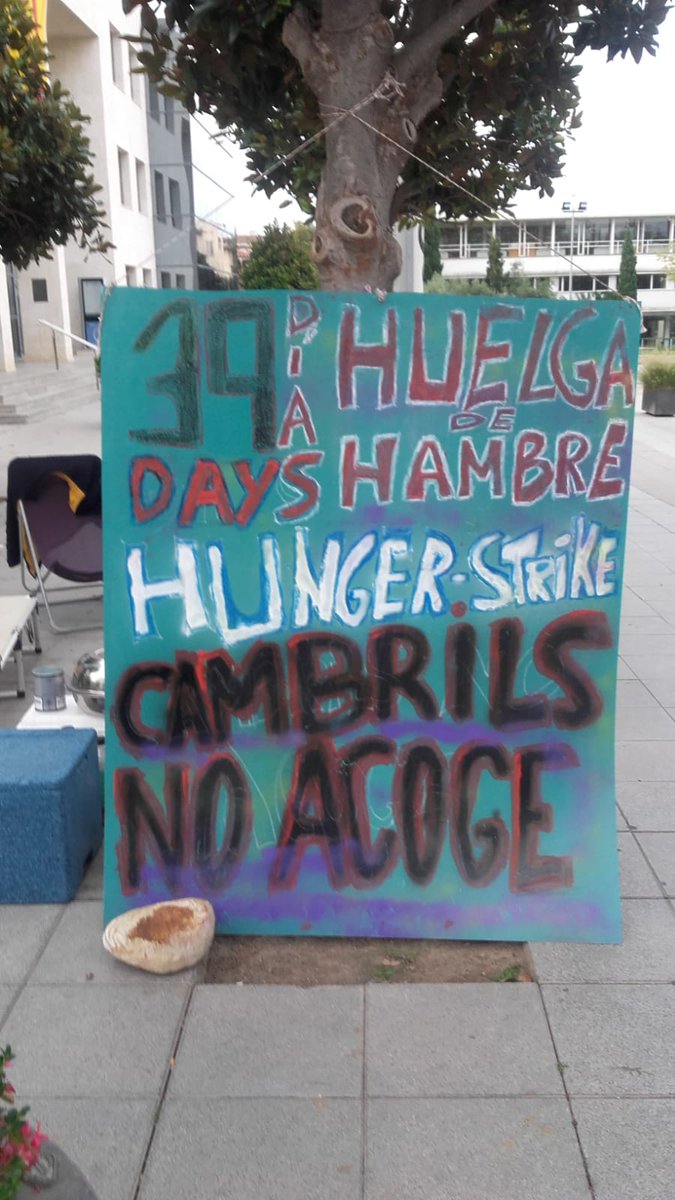 39 DÍAS HUELGA
DE
DAYS HAMBRE
HUNGER-STRiKE
CAMBRiLS
NO ACOGE